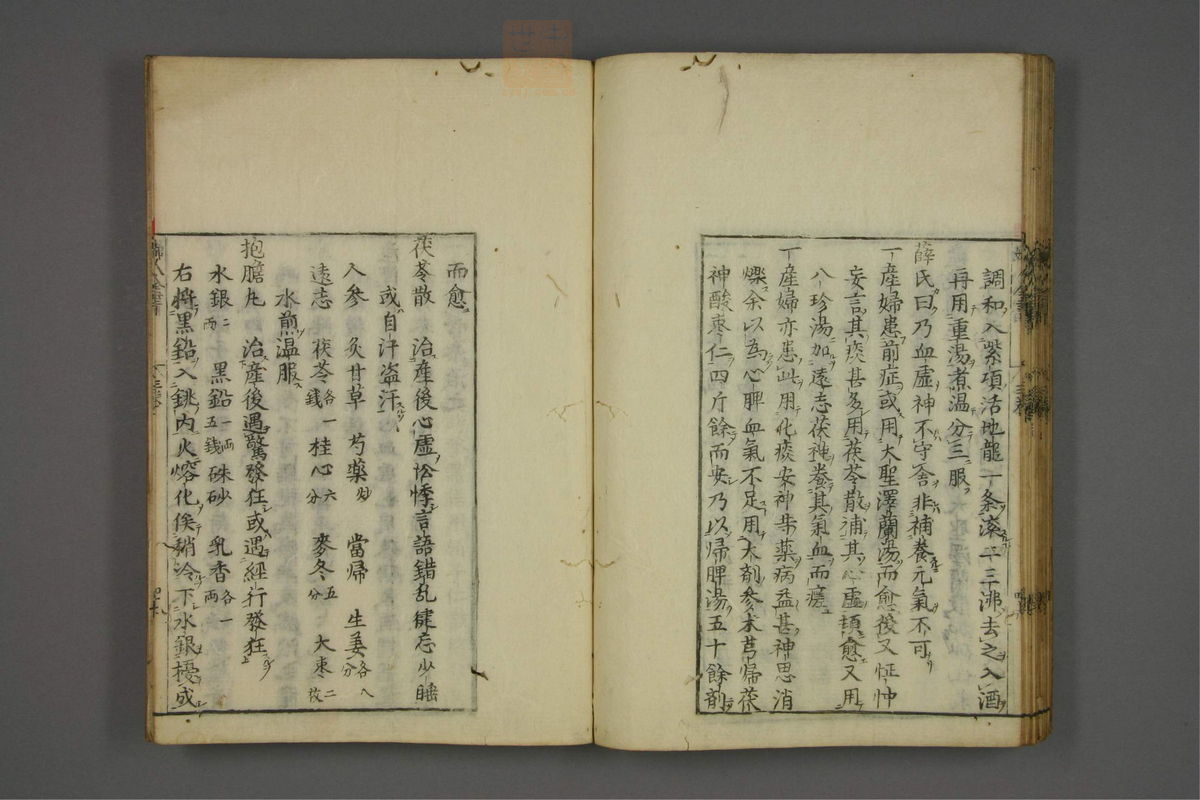 調和入紫項活地龍一条滚二三沸去之入酒
再用重湯煮温分三服
薛氏曰乃血虚神不守舎非補養元氣不可
一産婦患前症或用大聖澤蘭湯而愈後又怔忡
妄言其痰甚多用茯苓散補其心虚頓愈又用
八珍湯加遠志茯神養其氣血而瘥
一産婦亦患此用化痰安神等薬病益甚神思消
爍余以為心脾血氣不足用大剤参朮芎帰茯
神酸棗仁四斤餘而安乃以帰脾湯五十餘剤
而愈
茯苓散 治産後心虚忪悸言語錯乱健忘少睡
或自汗盗汗
人参 炙甘草 芍薬炒 當帰 生姜各八分
遠志 茯苓各一銭 桂心六分 麥冬五分 大棗二枚
水煎温服
抱膽丸 治産後遇驚發狂或遇經行發狂
水銀二両 黒鉛一両五銭 硃砂 乳香各一両
右將黒鉛入銚内火熔化俟稍冷下水銀擾成